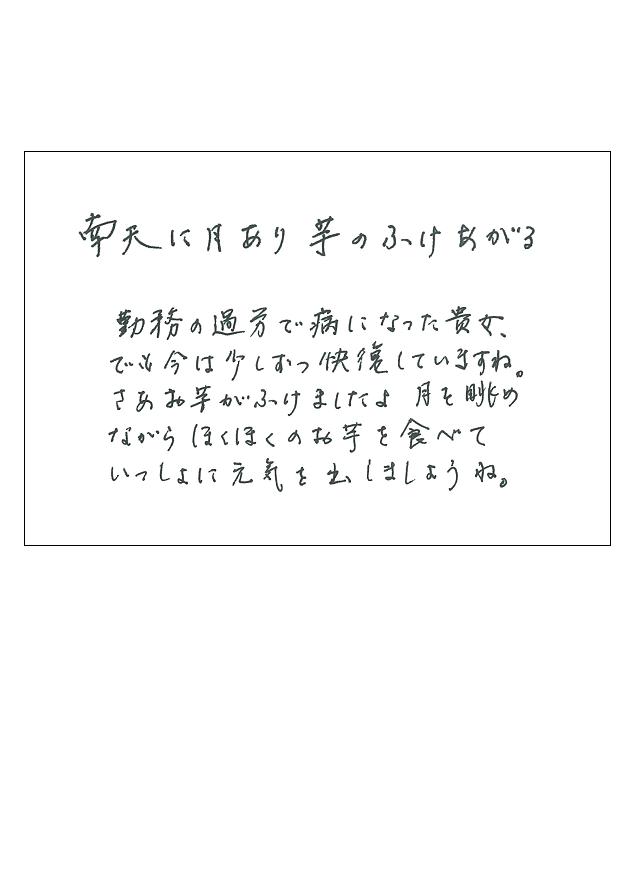 南天に月あり 芋のふっけあがる
勤務の過労で病になった貴女、
でも今は少しずつ快復していますね。
さあお芋がふけましたよ 月を眺め
ながらほくほくのお芋を食べて
いっしょに元気を出しましょうね。